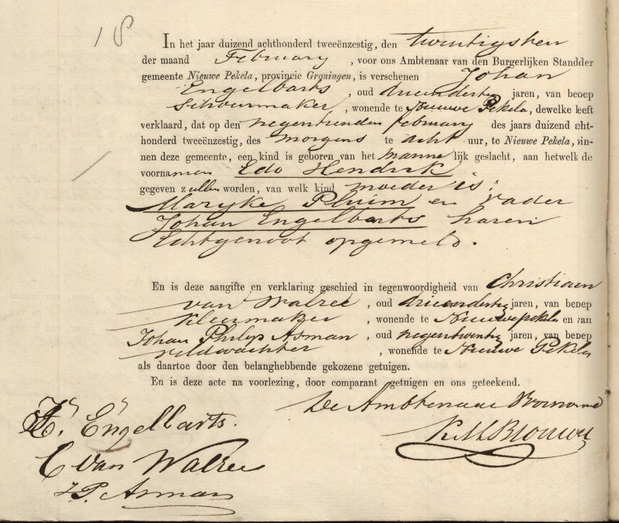 18
In het jaar duizend achthonderd tweeënzestig, den twintigsten
der maand February, voor ons Ambtenaar van den Burgerlijken Standder
gemeente Nieuwe Pekela, provincie Grgningen, is verschenen Johan
Engelbarts, oud drieendertig jaren, van beoep
Schoenmaker, wonende te Nieuwe Pekela, dewelke heeft
verklaard, dat op den negentienden february des jaars duizend acht-
honderd tweeënzestig, des morgens te acht uur, te Nieuwe Pekela, bin-
nen deze gemeente, een kind is geboren van het mannelijk geslacht, aan hetwelk de
voornamen Edo Hendrik
gegeven zullen worden, van welk kind moeder is:
Marijke Pluim en Vader
Johan Engelbarts haren
Echtgenoot opgemeld.
En is deze aangifte en verklaring geschied in tegenwoordigheid van Christiaan
van Walree, oud drieendertig jaren, van beoep
Kleermaker, wonende te Nieuwepekela en van
Johan Philip Asman, oud negentwintig jaren, van beoep
veldwachter, wonende te Nieuwe Pekela
als daartoe door den belanghebbende gekozene getuigen.
En is deze acte na voorlezing, door comparant getuigen en ons geteekend.
De Ambtenaar Voornoemd
J. Engelbarts.
C van Walree
J. P. Asman